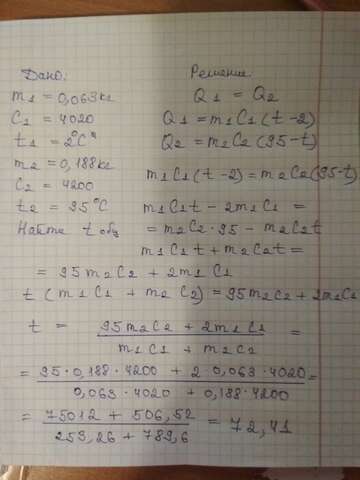 Дано:
m1 = 0,063кг
C1 = 4020
t1 = 2°C
m2 = 0,188кг
C2 = 4200
t2 = 95°C
Найти t общ
Решение
Q1 = Q2
Q1 = m1C1(t-2)
Q2 = m2C2(95-t)
m1C1(t-2) = m2C2(95-t)
m1C1t - 2m1C1 =
= m2C2·95 - m2C2t
m1C1t + m2C2t =
= 95m2C2 + 2m1C1
t(m1C1 + m2C2) = 95m2C2 + 2m1C1
t = 95m2C2 + 2m1C1 =
m1C1 + m2C2
= 95·0,188·4200 + 2 0,063·4020 =
0,063·4020 + 0,188·4200
= 75012 + 506,52 = 72,41
253,26 + 789,6